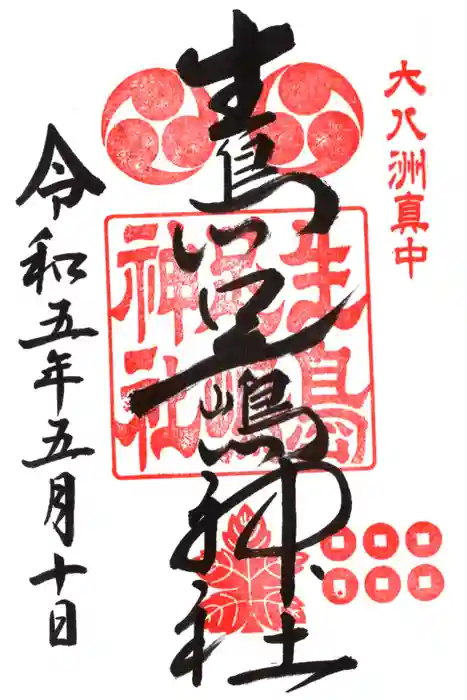 大八洲真中
生島足嶋神社
生島足嶋神社
令和五年五月十日